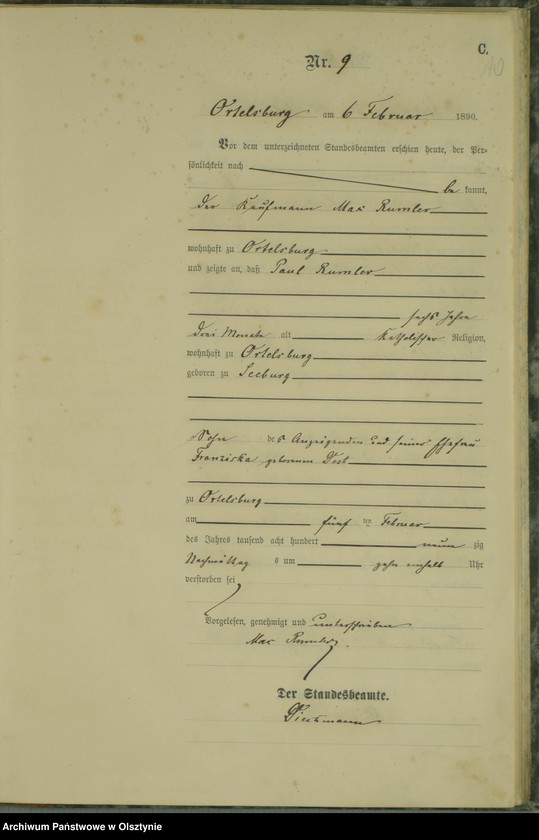 C.
10
Nr. 9
Ortelsburg am 6 Februar 1890.
Vor dem unterzeichneten Standesbeamten erschien heute, der Per-
sönlichkeit nach
be kannt,
der Kaufmann Max Rumler
wohnhaft zu Ortelsburg
und zeigte an, daß Paul Rumler
sechs Jahre
drei Monate alt katholischer Religion,
wohnhaft zu Ortelsburg
geboren zu Seeburg
Sohn des Anzeigenden und seiner Ehefrau
Franziska geborenen
zu Ortelsburg
am fünf ten Februar
des Jahres tausend acht hundert neun zig
Nachmittag s um zehn einhalb Uhr
verstorben sei
Vorgelesen, genehmigt und unterschrieben
Max Rumler.
Der Standesbeamte.
Archiwum Państwowe w Olsztynie